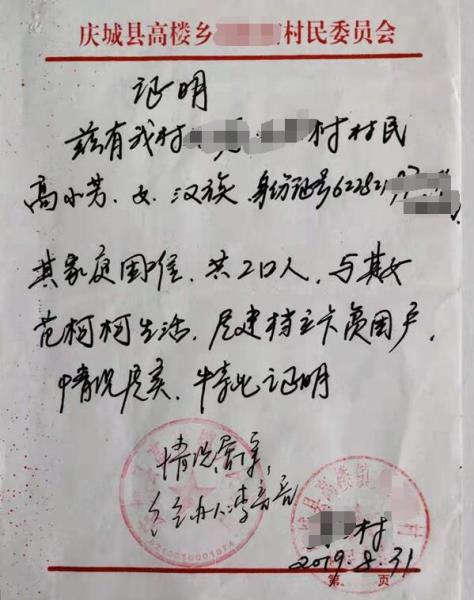 庆城县高楼乡村民委员会
证明
兹有我村村村民
高小芳、女、汉族 身份证号622821
其家庭困难，共2口人，与其女
范柯柯生活，属建档立卡贫困户，
情况属实，特此证明
情况属实，
经办人李
村
2019.8.31
第 页